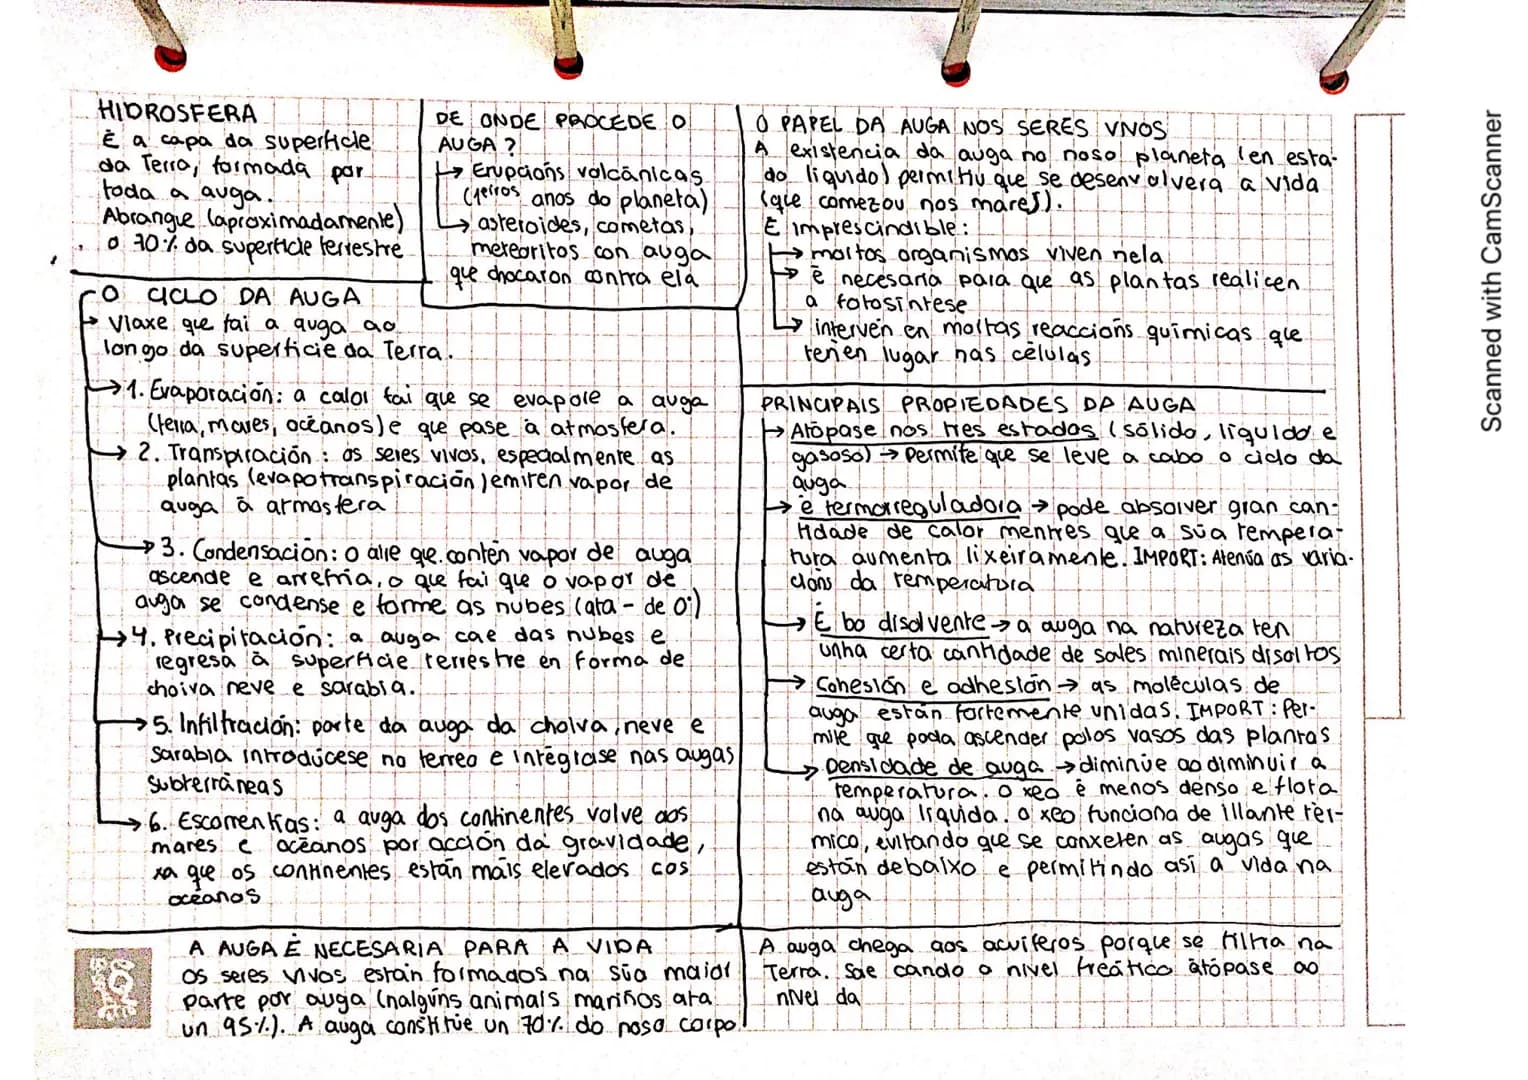 HIDROSFERA
É a capa da superficie
da Terra, formada por
toda a auga.
Abrangue (aproximadamente)
o 70% da superficie terrestre
DE ONDE PROCÉDE O
AUGA?
↳ Erupcións volcánicas
(1eiros anos do planeta)
↳ asteroides, cometas,
meteoritos con auga
que chocaron contra ela
O CICLO DA AUGA
→ Viaxe que fai a auga ao
longo da superficie da Terra.
→ 1. Evaporación: a calor fai que se evapore a auga
(terra, mares, océanos) e que pase á atmosfera.
→ 2. Transpiración: os seres vivos, especialmente as
plantas (evapotranspiración) emiten vapor de
auga á atmosfera
→ 3. Condensación: o aire que contén vapor de auga
ascende e arrefría, o que fai que o vapor de
auga se condense e forme as nubes (ata - de 0°)
→ 4. Precipitación: a auga cae das nubes e
regresa á superficie terrestre en forma de
choiva neve e sarabia.
→ 5. Infiltración: parte da auga da choiva, neve e
sarabia introdúcese no terreo e intégrase nas augas
subterráneas
→ 6. Escorrentías: a auga dos continentes volve aos
mares e océanos por acción da gravidade,
xa que os continentes están máis elevados cos
océanos
A AUGA É NECESARIA PARA A VIDA
Os seres vivos están formados na súa maior
parte por auga (nalgúns animais mariños ata
un 95%). A auga constitúe un 70% do noso corpo
O PAPEL DA AUGA NOS SERES VIVOS
A existencia da auga no noso planeta (en esta-
do líquido) permitiu que se desenvolvera a vida
(que comezou nos mares).
É imprescindible:
→ moitos organismos viven nela
→ é necesaria para que as plantas realicen
a fotosíntese
→ intervén en moitas reaccións químicas que
teñen lugar nas células
PRINCIPAIS PROPIEDADES DA AUGA
→ Atópase nos tres estados (sólido, líquido e
gasoso) → permite que se leve a cabo o ciclo da
auga
→ é termorreguladora → pode absorver gran can-
tidade de calor mentres que a súa tempera-
tura aumenta lixeiramente. IMPORT: Atenúa as varia-
cións da temperatura
→ É bo disolvente → a auga na natureza ten
unha certa cantidade de sales minerais disoltos
→ Cohesión e adhesión → as moléculas de
auga están fortemente unidas. IMPORT: Per-
mite que poda ascender polos vasos das plantas
→ Densidade de auga → diminúe ao diminuir a
temperatura. O xeo é menos denso e flota
na auga líquida. O xeo funciona de illante tér-
mico, evitando que se conxelen as augas que
están debaixo e permitindo así a vida na
auga
A auga chega aos acuíferos porque se filtra na
Terra. Sae cando o nivel freático atópase ao
nivel da
Scanned with CamScanner